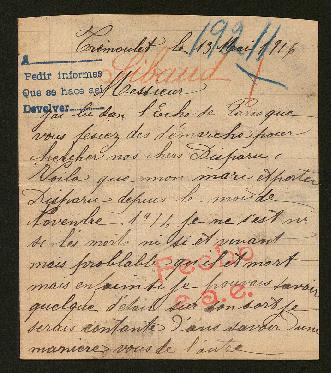 Tremoulet le 13 Mai 1916
19211
Libaud
A
Pedir informes
Que se haos asi
Devolver
Monsieur
jai lu dan l'Echo de Paris que
vous fesiez des démarche pour
chercher nos chers Disparu
Voila que mon mari et porter
Disparu depuis le mois de
Novenbre 1914 je ne s'est ni
si les mort ni si et vivant
mais problable quil et mort
mais enfin si je pouvais savoir
quelque détail sur son sort je
serais contante d'ans savoir d'une
maniere vous de l'autre
Fecho
e.s.e.